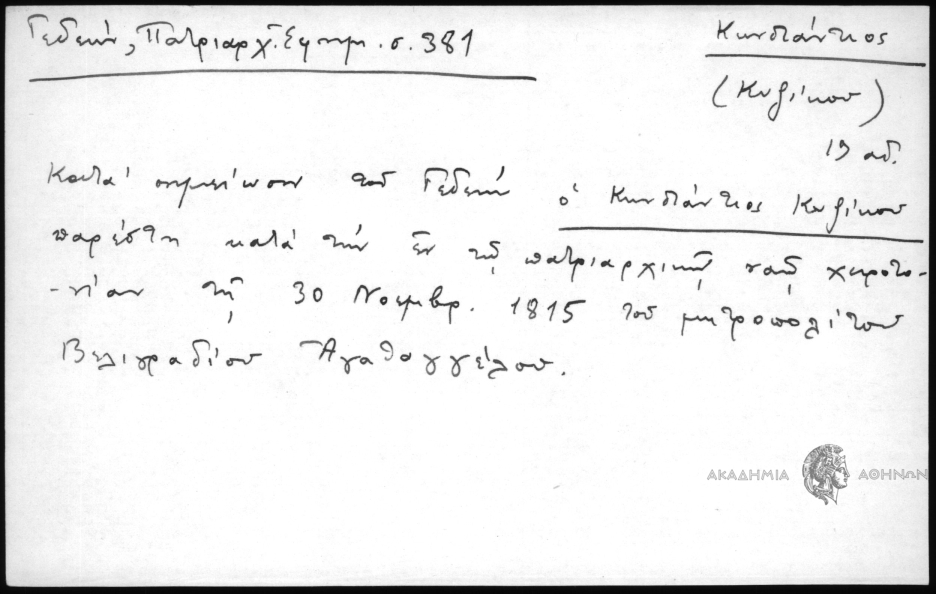 Γεδεών, Πατριαρχ. Εφημ. σ. 381
Κωνστάντιος
(Κυζίκου)
19 αἰ.
Κατὰ σημείωσιν τοῦ Γεδεών ὁ Κωνστάντιος Κυζίκου
παρέστη κατὰ τὴν ἐν τῷ πατριαρχικῷ ναῷ χειροτο-
-νίαν τῇ 30 Νοεμβρ. 1815 τοῦ μητροπολίτου
Βελιγραδίου Ἀγαθαγγέλου.
ΑΚΑΔΗΜΙΑ ΑΘΗΝΩΝ